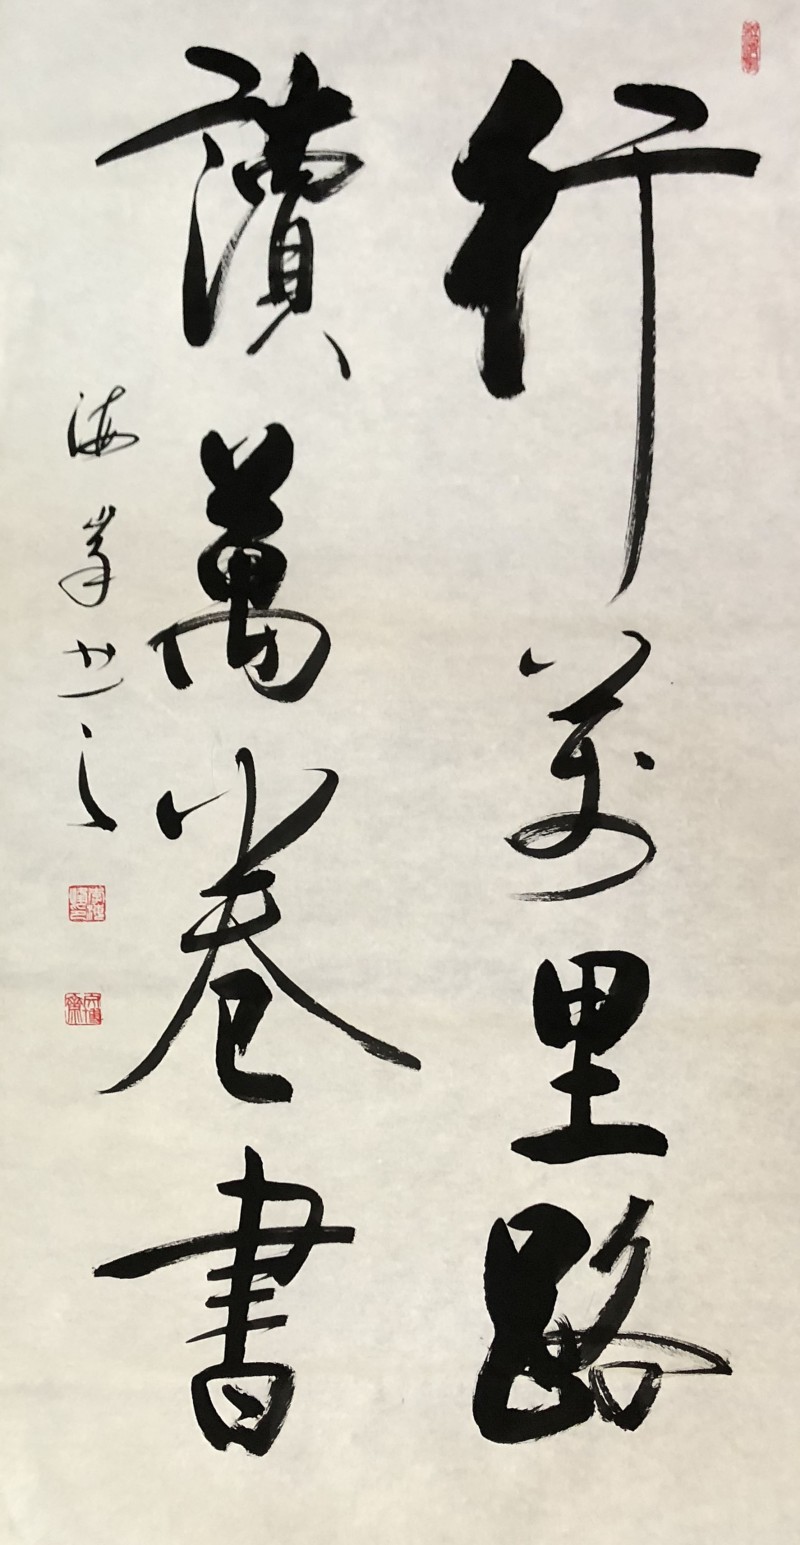 行萬里路
讀萬卷書
海峯書之